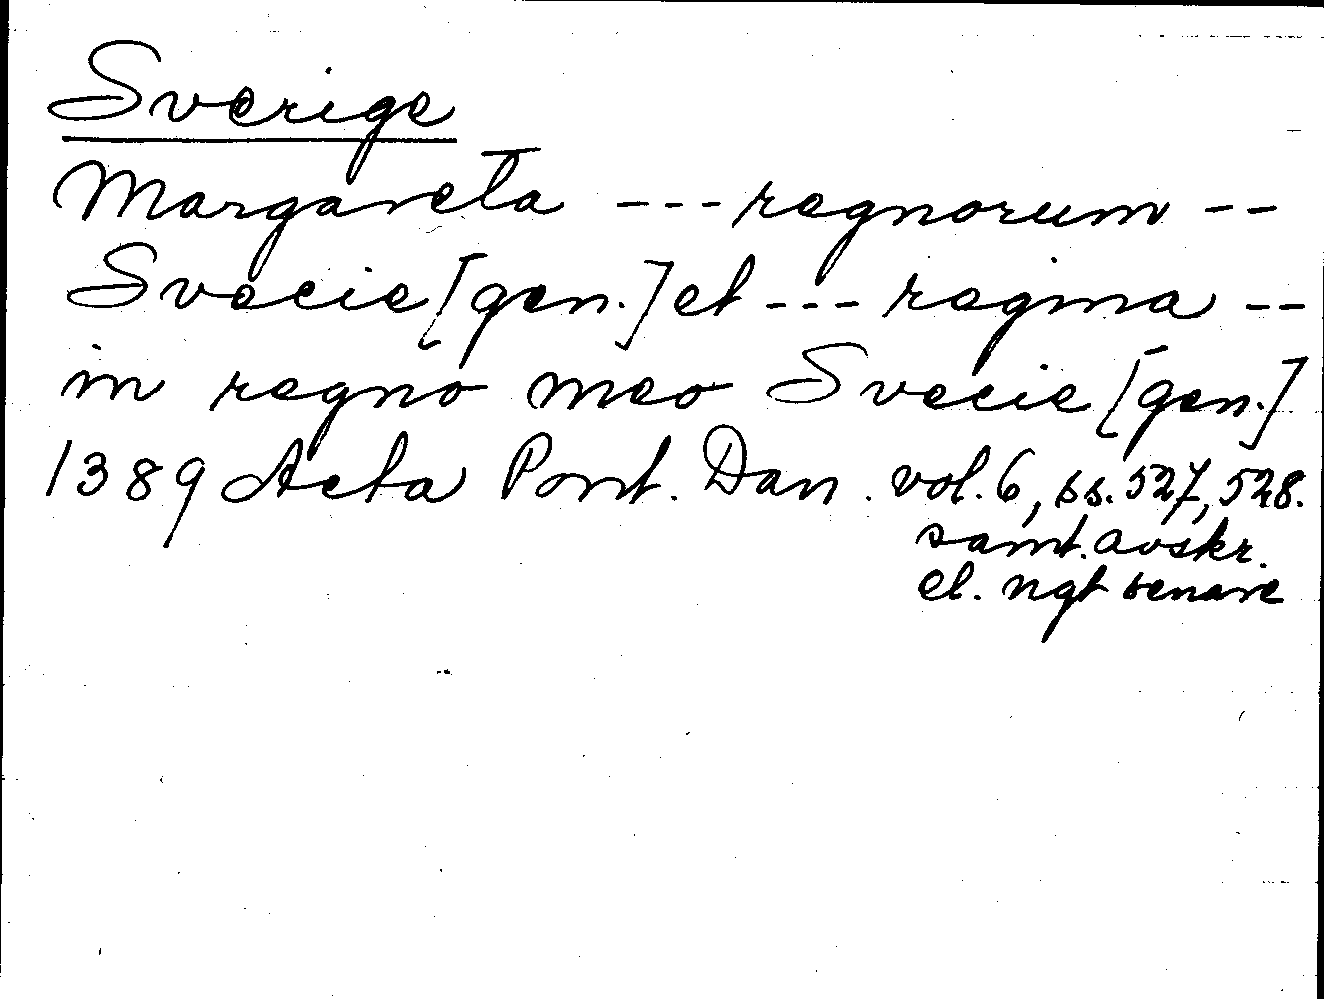 Sverige
Margareta --- regnorum --
Svecie [gen.] et --- regina --
in regno meo Svecie [gen.]
1389 Acta Pont. Dan. vol. 6, ss. 527, 528.
samt. avskr.
el. ngt senare